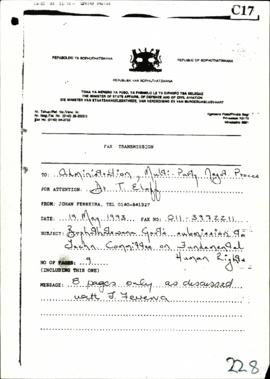 C17
REPABOLIKI YA BOPHUTHATSWANA
REPUBLIC OF BOPHUTHATSWANA
REPUBLIEK VAN BOPHUTHATSWANA
TONA YA MERERO YA PUSO, YA PHEMELO LE YA DIFOFO TSA SELEGAE
THE MINISTER OF STATE AFFAIRS, OF DEFENCE AND OF CIVIL AVIATION
DIE MINISTER VAN STAATSAANGELEENTHEDE, VAN VERDEDIGING EN VAN BURGERLUGVAART
FAX TRANSMISSION
TO: Administration, Multi-Party Nego Process
FOR ATTENTION: Dr. T. Eloff
FROM: JOHAN FERREIRA, TEL 0140-841527
DATE: 19 May 1993 FAX NO: 011-3972211
SUBJECT: Bophuthatswana Govt's submission to
Techn Committee on Fundamental
Human Rights
NO OF PAGES: 9
(INCLUDING THIS ONE)
MESSAGE: 8 pages only as discussed
with J. Ferreira
228